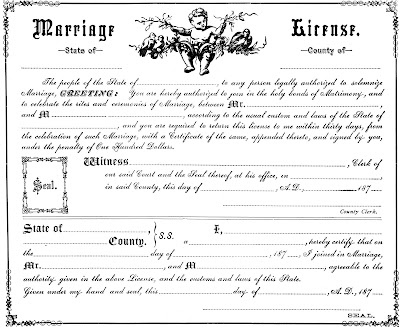 Marriage License.
State of County of
The people of the State of , to any person legally authorized to solemnize
Marriage, GREETING: You are hereby authorized to join in the holy bonds of Matrimony, and
to celebrate the rites and ceremonies of Marriage, between Mr.
and M , according to the usual custom and laws of the State of
, and you are required to return this license to me within thirty days, from
the celebration of such Marriage, with a Certificate of the same, appended thereto, and signed by you,
under the penalty of One Hundred Dollars.
Seal.
Witness , Clerk of
our said Court and the Seal thereof, at his office, in
in said County, this day of , A.D. 187
County Clerk.
State of
County. } S.S.
I,
a , hereby certify that on
the day of , 187 I joined in Marriage,
Mr. , and M agreeable to the
authority given in the above License, and the customs and laws of this State.
Given under my hand and seal, this day of , A.D., 187
SEAL.